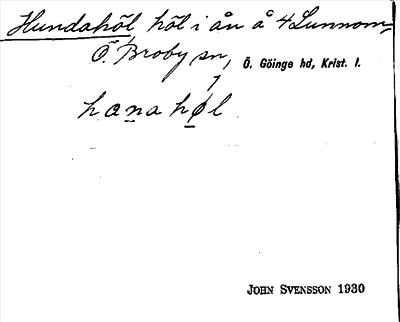 Hundahöl, höl i ån å 4 Lunnom,
Ö. Broby sn, Ö. Göinge hd, Krist. l.
hanahøl
JOHN SVENSSON 1930